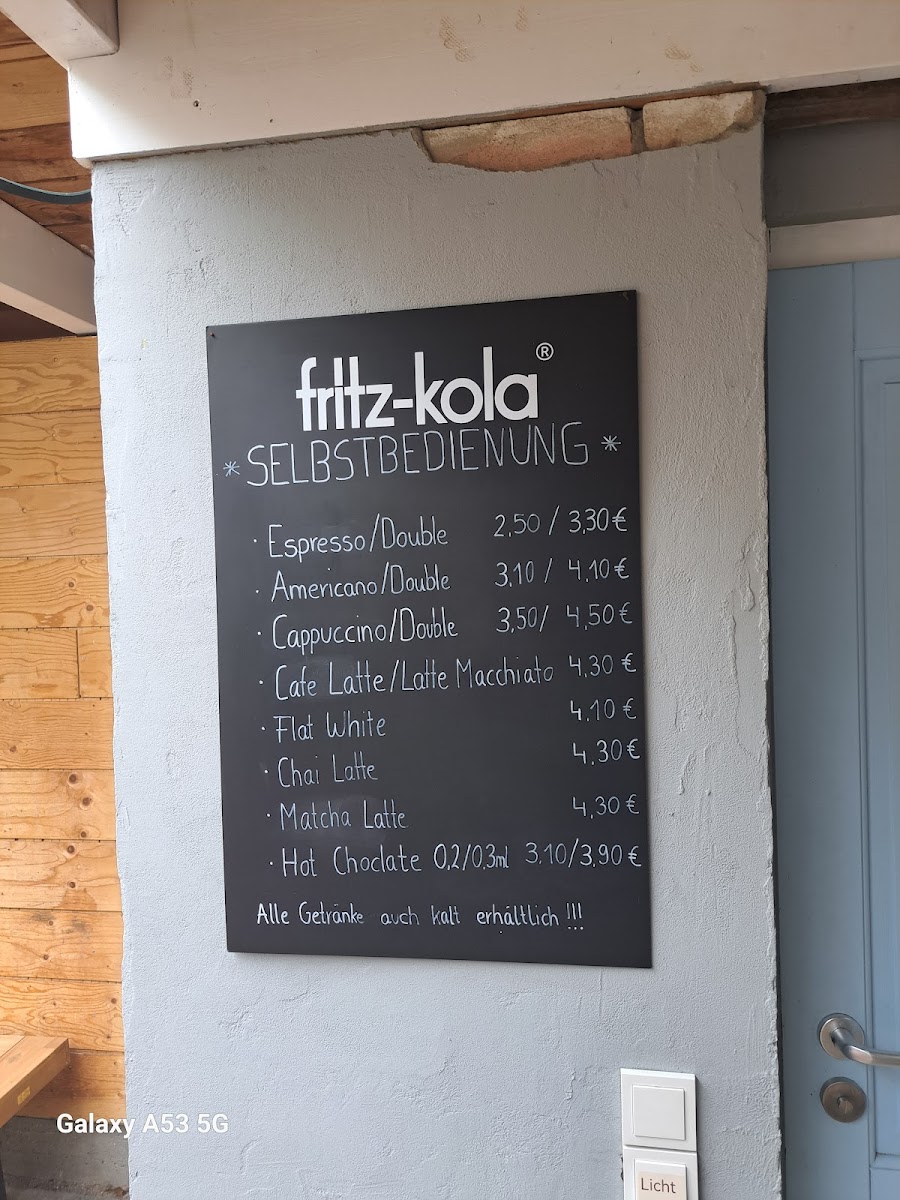 fritz-kola®
*SELBSTBEDIENUNG*
· Espresso/Double 2,50 / 3,30€
· Americano/Double 3,10 / 4,10€
· Cappuccino/Double 3,50/ 4,50€
· Cafe Latte/Latte Macchiato 4,30 €
· Flat White 4,10 €
· Chai Latte 4,30€
· Matcha Latte 4,30€
· Hot Choclate 0,2/0,3ml 3,10/3,90€
Alle Getränke auch kalt erhältlich!!!
Licht
Galaxy A53 5G